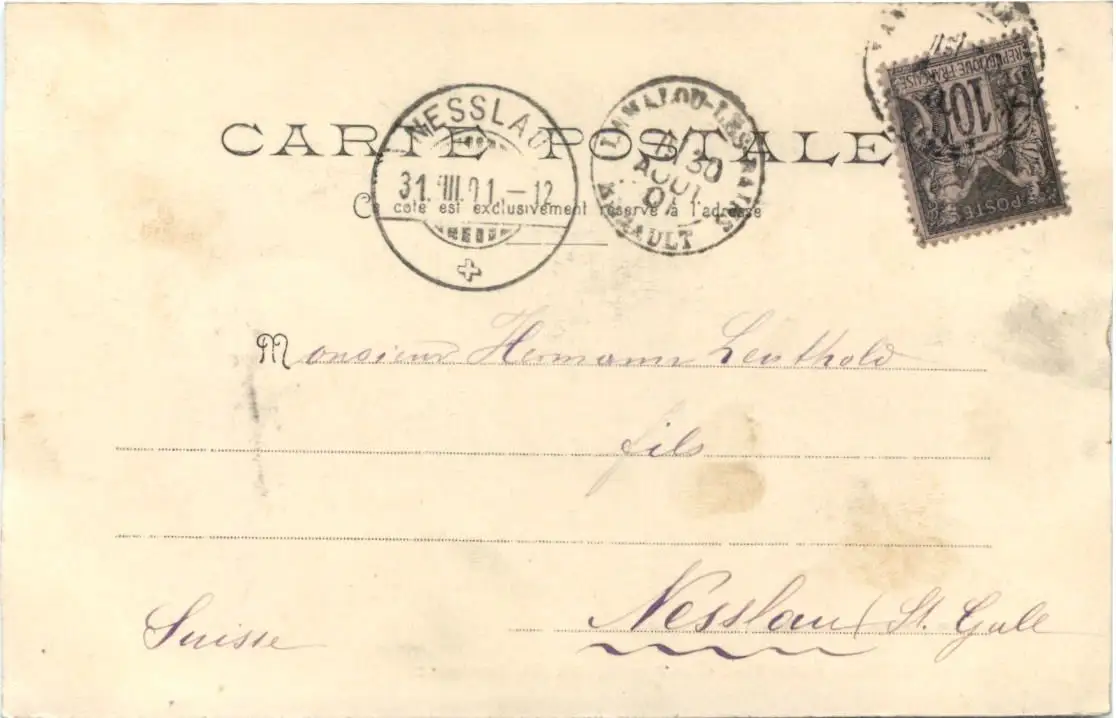 CARTE POSTALE
Ce coté est exclusivement réservé à l'adresse
NESSLAU
31. VIII. 01. – 12
LAMALOU-LES-BAINS
30
AOUT
01
HERAULT
REPUBLIQUE FRANÇAISE
10
POSTES
Monsieur Hermann Leuthold
fils
Nesslau (St. Gale
Suisse